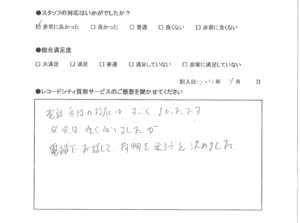 ●スタッフの対応はいかがでしたか？
☑ 非常に良かった □ 良かった □ 普通 □ 良くない □ 非常に良くない
●総合満足度
□ 大満足 □ 満足 □ 普通 □ 満足していない □ 非常に満足していない
記入日: 年 月 日
●レコードシティ買取サービスのご感想を聞かせてください
電話 の対応は すごく よかったです
電話で お話して、荷物を送ろうと決めました